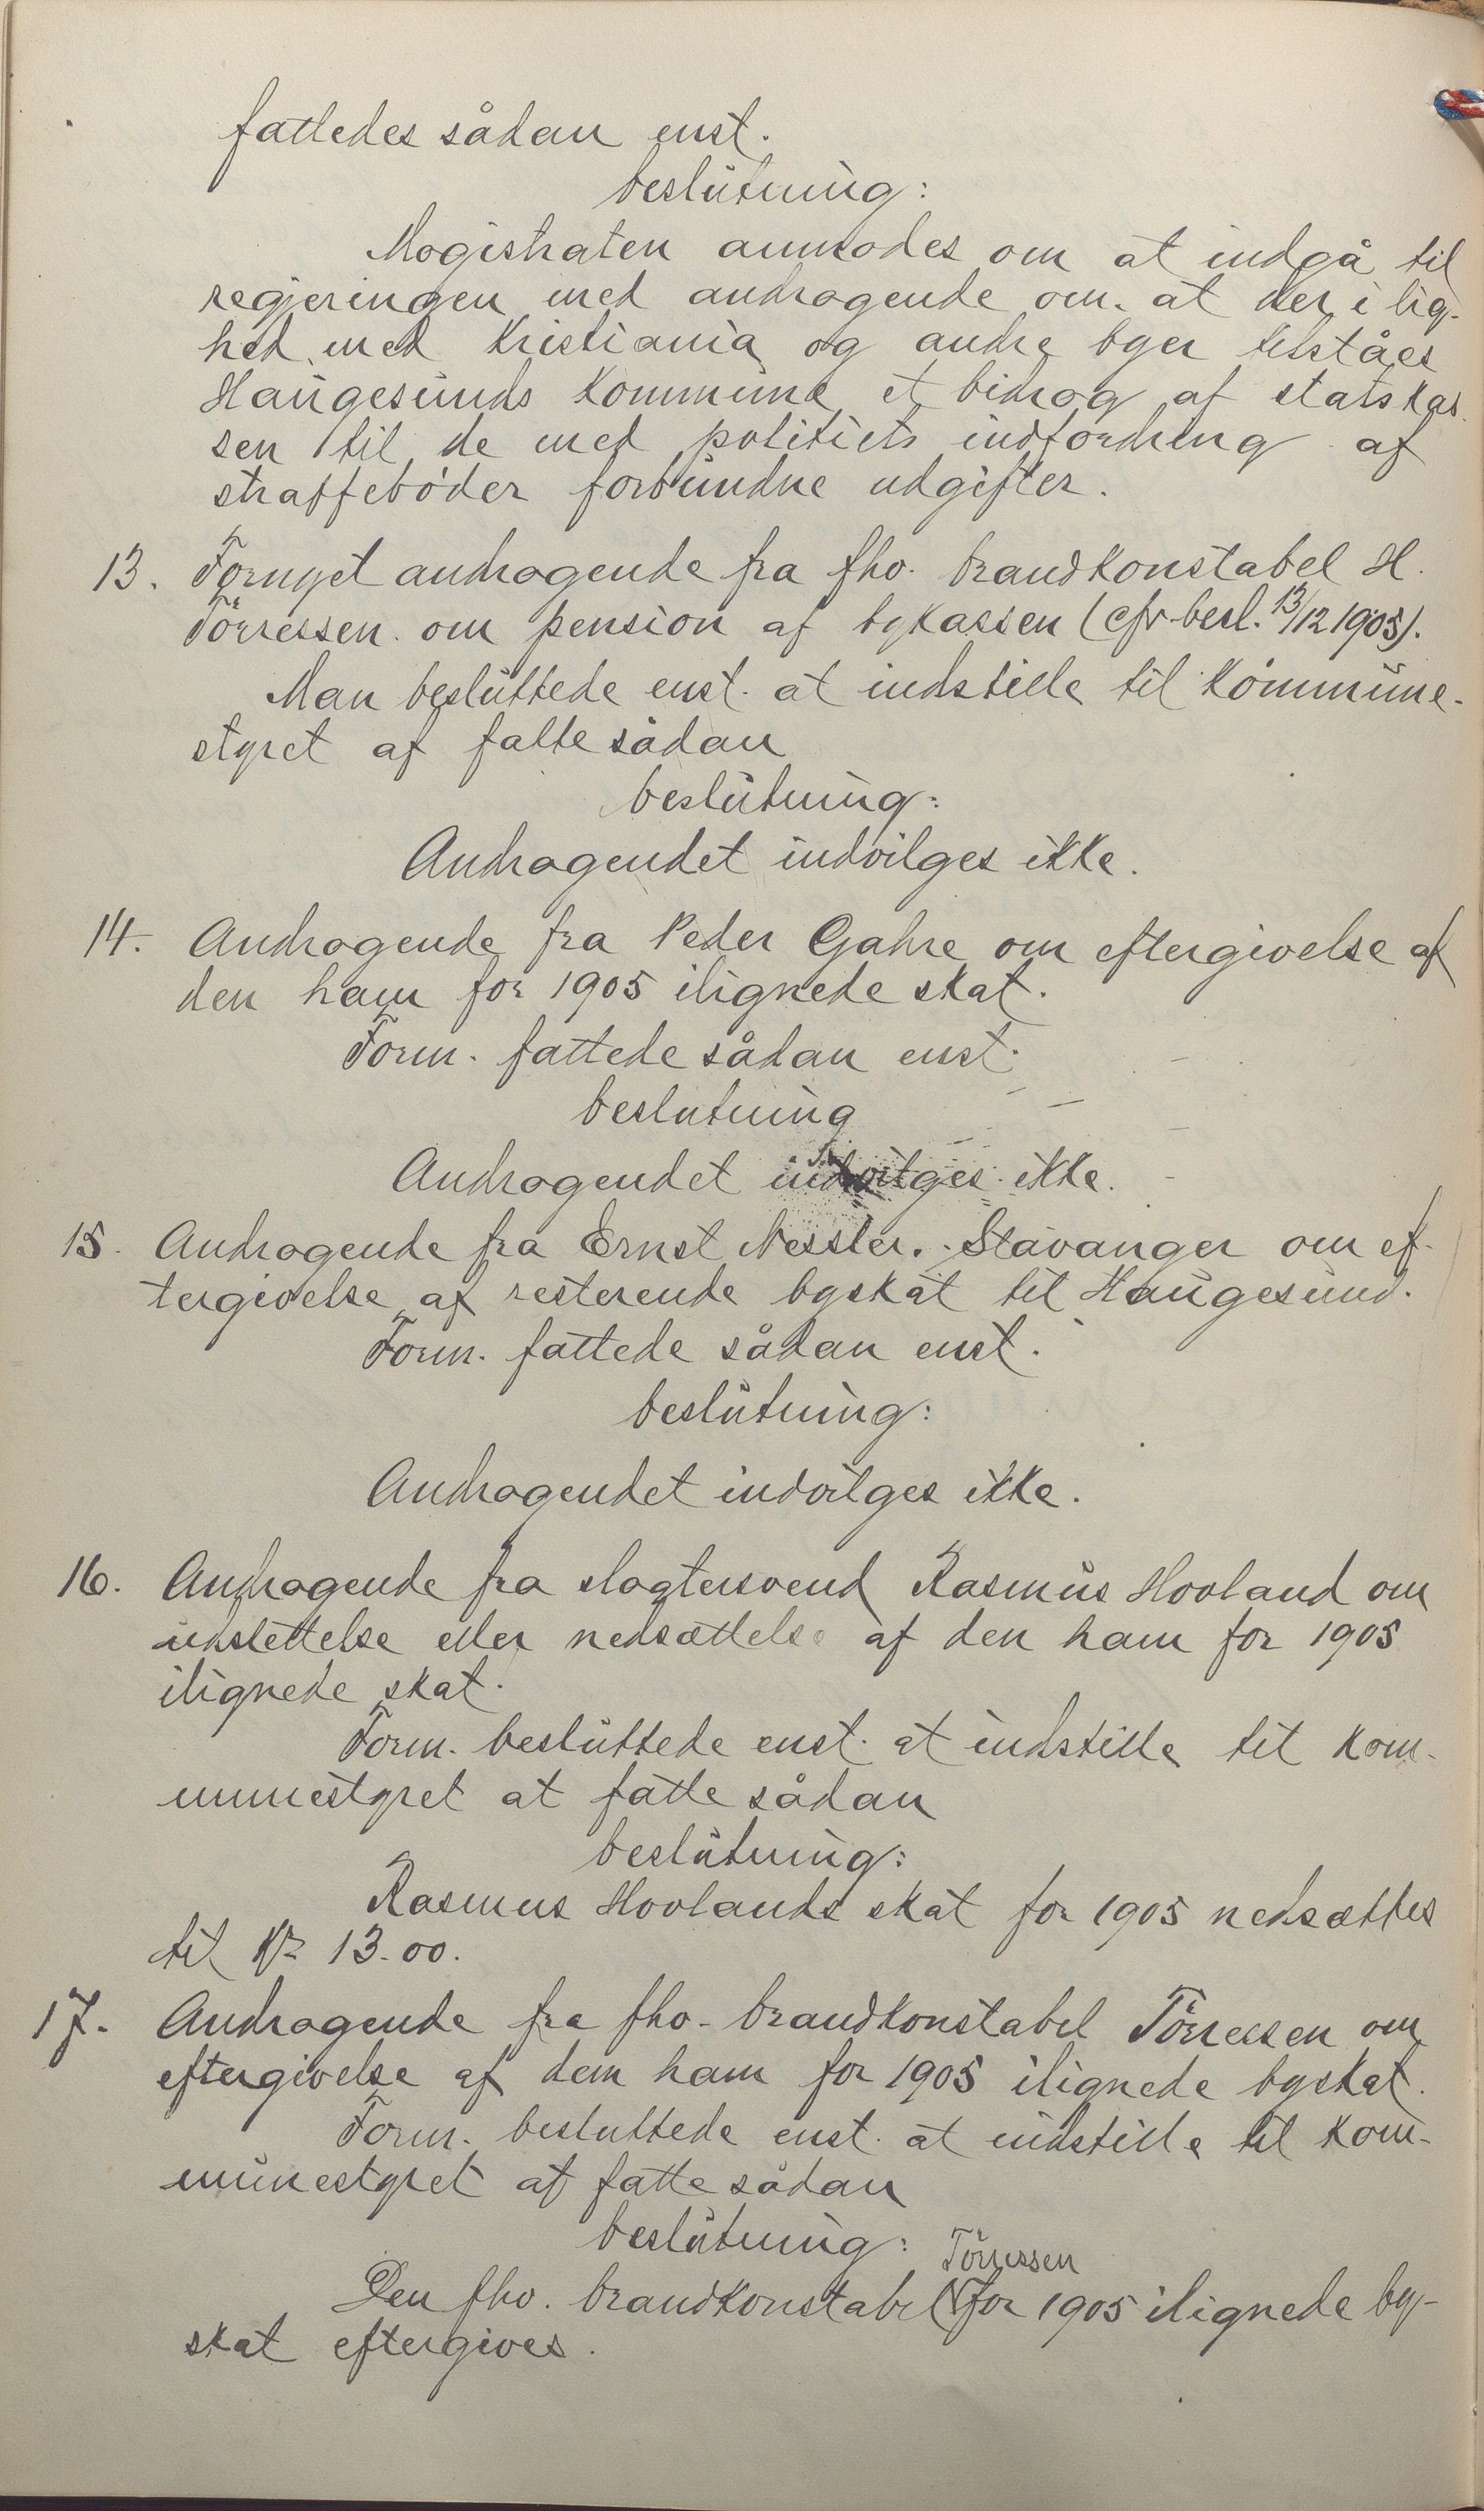 fattedes sådan enst.
beslutning:
Magistraten anmodes om at indgå til
regjeringen med andragende om at der i lig-
hed med Kristiania og andre byer tilståes
Haugesunds kommune et bidrag af statskas-
sen til de med politiets indfordring af
straffebøder forbundne udgifter.
13. Fornyet andragende fra fhv. brandkonstabel H.
Törressen om pension af bykassen (cfr besl. 13/12 1905).
Man besluttede enst. at indstille til kommune-
styret at fatte sådan
beslutning:
Andragendet indvilges ikke.
14. Andragende fra Peder Gahre om eftergivelse af
den ham for 1905 ilignede skat.
Form. fattede sådan enst.
beslutning
Andragendet indvilges ikke.
15. Andragende fra Ernst Nessler, Stavanger om ef-
tergivelse af resterende byskat til Haugesund.
Form. fattede sådan enst.
beslutning:
Andragendet indvilges ikke.
16. Andragende fra slagtersvend Rasmus Hovland om
udslettelse eller nedsættelse af den ham for 1905
ilignede skat.
Form. besluttede enst. at indstille til kom-
munestyret at fatte sådan
beslutning:
Rasmus Hovlands skat for 1905 nedsættes
til Kr 13.00.
17. Andragende fra fhv. brandkonstabel Törressen om
eftergivelse af den ham for 1905 ilignede byskat.
Form. besluttede enst. at indstille til kom-
munestyret at fatte sådan
beslutning:
Törressen
Den fhv. brandkonstabel for 1905 ilignede by-
skat eftergives.